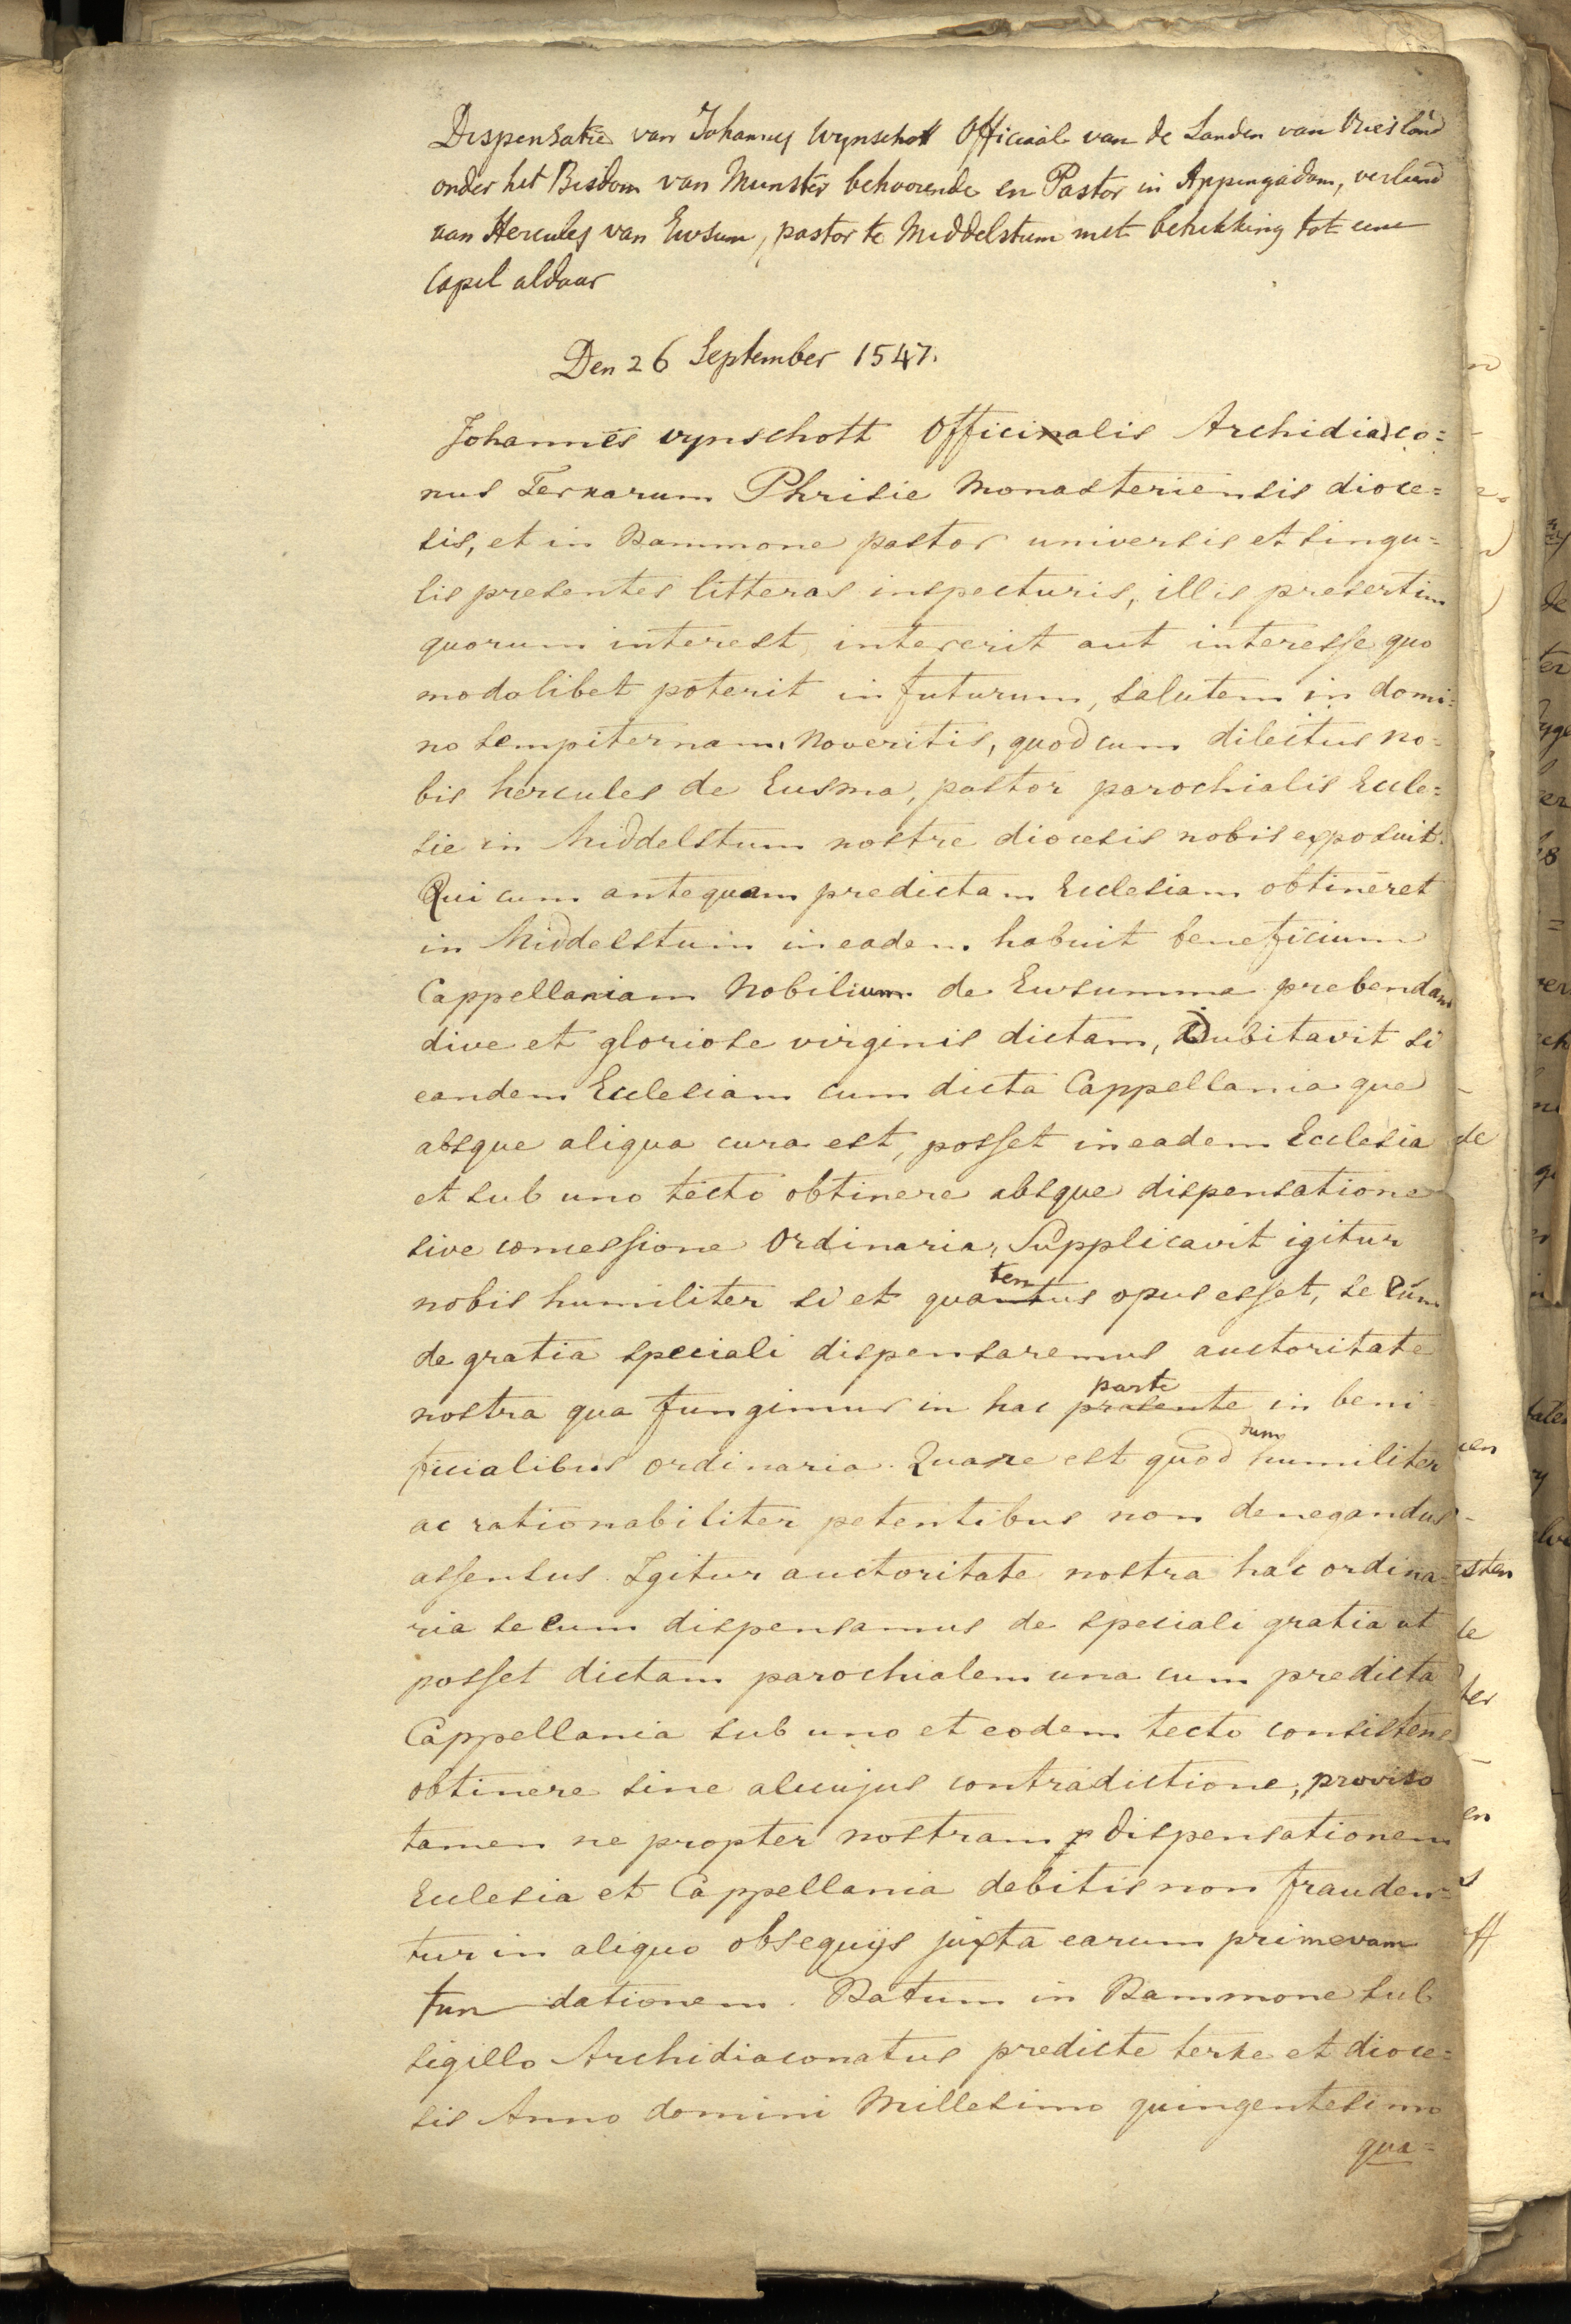 Dispensatie van Johannes Wynschott Officiaal van de Landen van Vriesland
onder het Bisdom van Munster behoorende en Pastor in Appingadam, verleend
aan Hercules van Ewsum, pastor te Middelstum met betrekking tot eene
Capel aldaar
Den 26 September 1547.
Johannes vynschott Officialis Archidiaco=
nus Terrarum Phrisie Monasteriensis dioce=
sis, et in Dammone pastor universis et singu=
lis presentes litteras inspecturis, illis presertim
quorum interest, intererit aut interesse quo
modolibet poterit in futurum, salutem in domi=
no sempiternam, Noveritis, quod cum dilectus no=
bis hercules de Eusma, pastor parochialis Eccle=
sie in Middelstum nostre diocesis nobis exposuit.
Qui cum antequam predictam Ecclesiam obtineret
in Middelstum in eadem habuit beneficium
Cappellaniam Nobilium de Ewsumma prebendam
dive et gloriose virginis dictam, Dubitavit si
eandem Ecclesiam cum dicta Cappellania que
absque aliqua cura est, posset in eadem Ecclesia
et sub uno tecto obtinere absque dispensatione
sive concessione Ordinaria, Supplicavit igitur
nobis humiliter si et quatenus opus esset, secum
de gratia speciali dispensaremus auctoritate
nostra qua fungimur in hac presente parte in beni=
ficialibus ordinaria. Quare est quod dum humiliter
ac rationabiliter petentibus non denegandus
assensus. Igitur auctoritate nostra hac ordina=
ria secum dispensamus de speciali gratia ut
posset dictam parochialem una cum predicta
Cappellania sub uno et eodem tecto consistens
obtinere sine alicujus contradictione, proviso
tamen ne propter nostram dispensationem
Ecclesia et Cappellania debitis non frauden=
tur in aliquo obsequijs juxta earum primevam
fundationem. Datum in Dammone sub
sigillo Archidiaconatus predicte terre et dioce=
sis Anno domini Millesimo quingentesimo
qua=